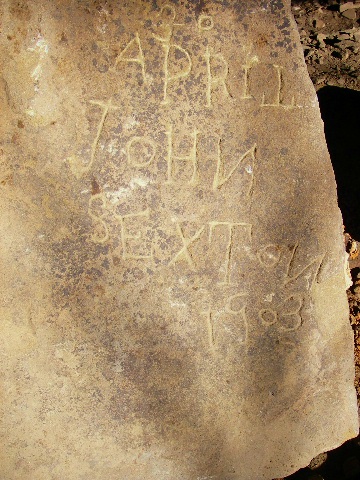 20
APRIL
JOHN
SEXTON
1903